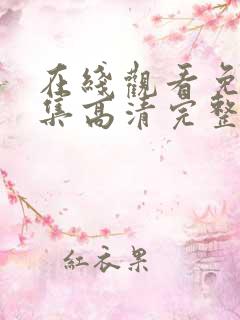 在綫觀看免
集高清完整
紅衣果